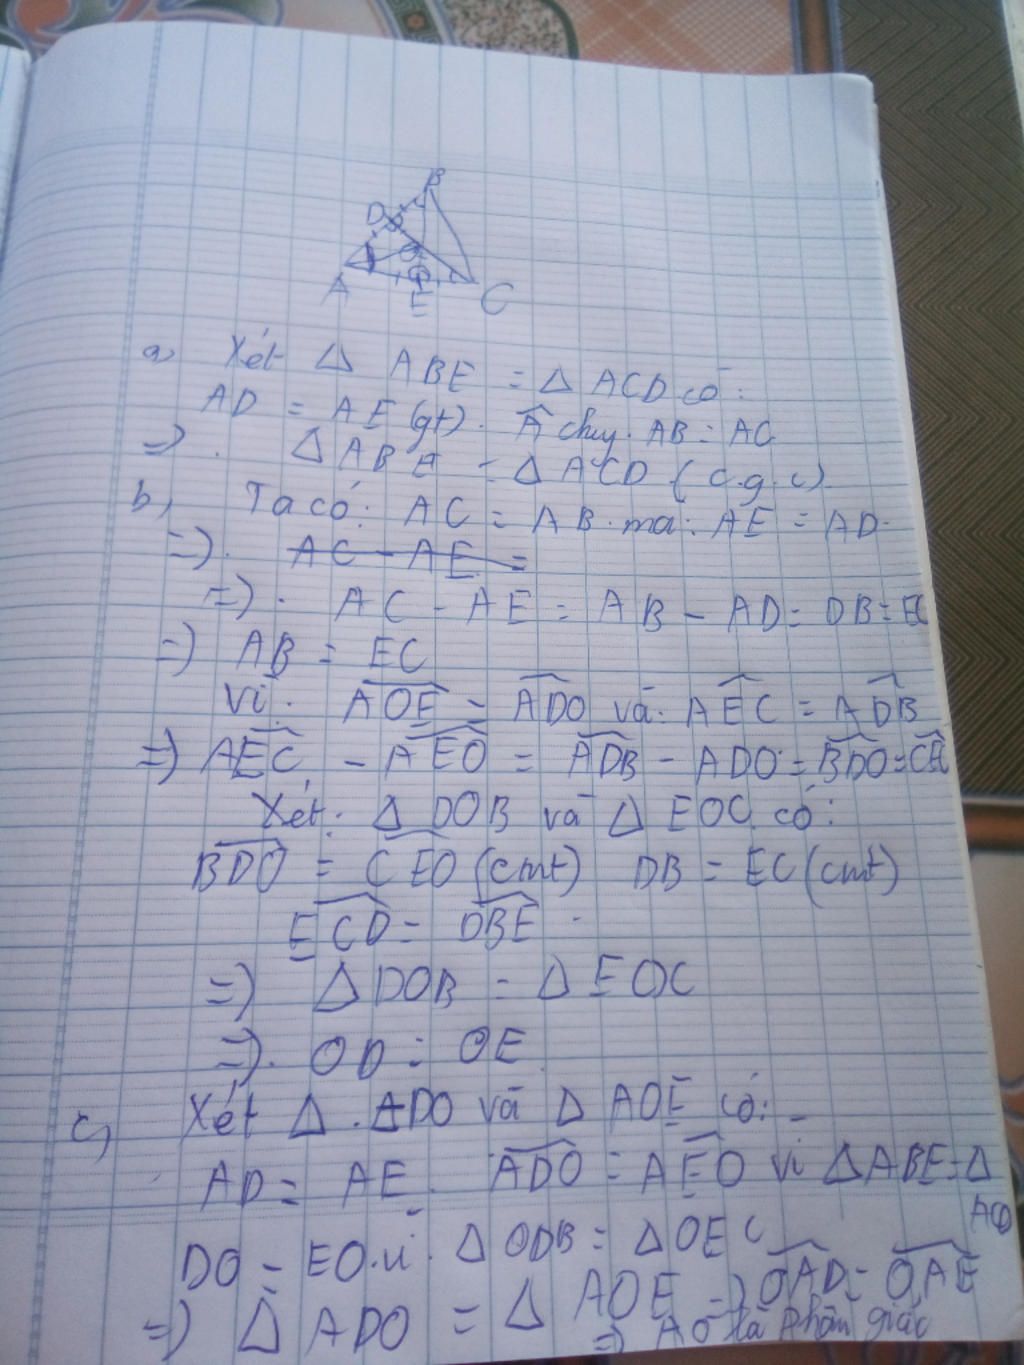 B
D
O
A
E
C
a, Xét Δ ABE = Δ ACD có:
AD = AE (gt). Â chug. AB = AC
=> . Δ ABE = Δ ACD (c.g.c)
b, Ta có: AC = AB. mà: AE = AD.
=>. AC - AE =
=>. AC - AE = AB - AD = DB = EC
=> AB = EC
Vì. AOE = ADO và: AEC = ADB
=> AEC - AEO = ADB - ADO = BDO = CE
Xét: Δ DOB và Δ EOC có:
BDO = CEO (cmt) DB = EC (cmt)
ECD = DBE
=> Δ DOB = Δ EOC
=>. OD = OE
c, Xét Δ. ADO và Δ AOE có:
AD = AE. ADO = AEO vì Δ ABE = Δ
ACD
DO = EO. vì. Δ ODB = Δ OEC
=> Δ ADO = Δ AOE => OAD = OAE
=> AO là phân giác